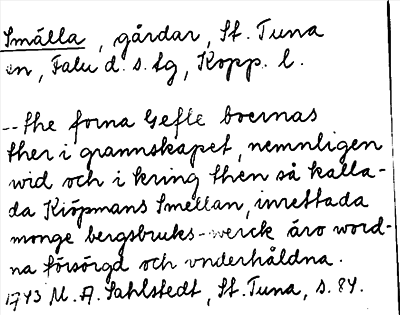 Smälla, gårdar, St. Tuna
sn, Falu d. s. lg, Kopp. l.
-- the forna Gefle boernas
ther i grannskapet, nemnligen
wid och i kring then så kalla-
da Kiöpmans Smellan, inrettada
monge bergsbruks-werck äro word-
na försörgd och vnderhåldna.
1743 M. A. Sahlstedt, St. Tuna, s. 84.